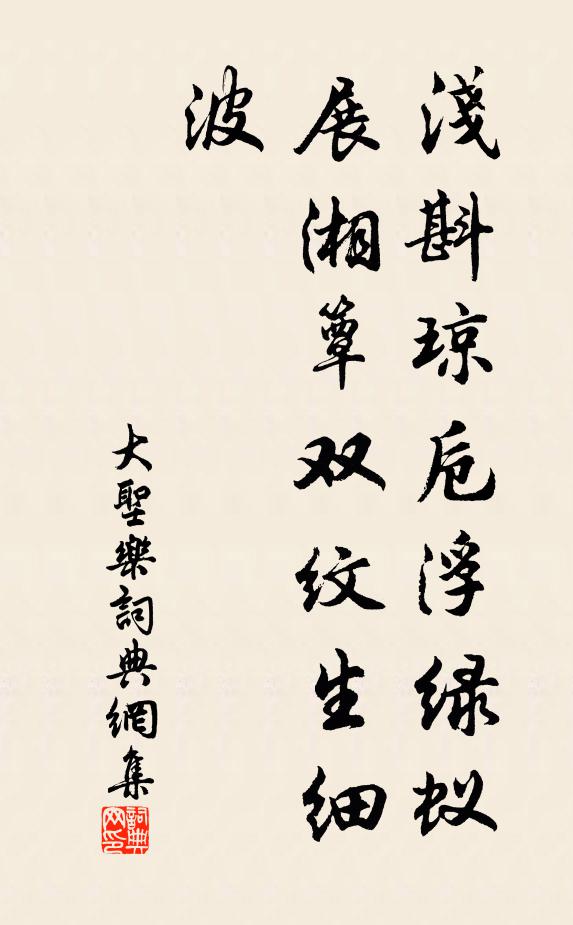 淺斟琼卮浮绿蚁
展湘簟双纹生细
波
大聖樂詞典網集
詞典
网印